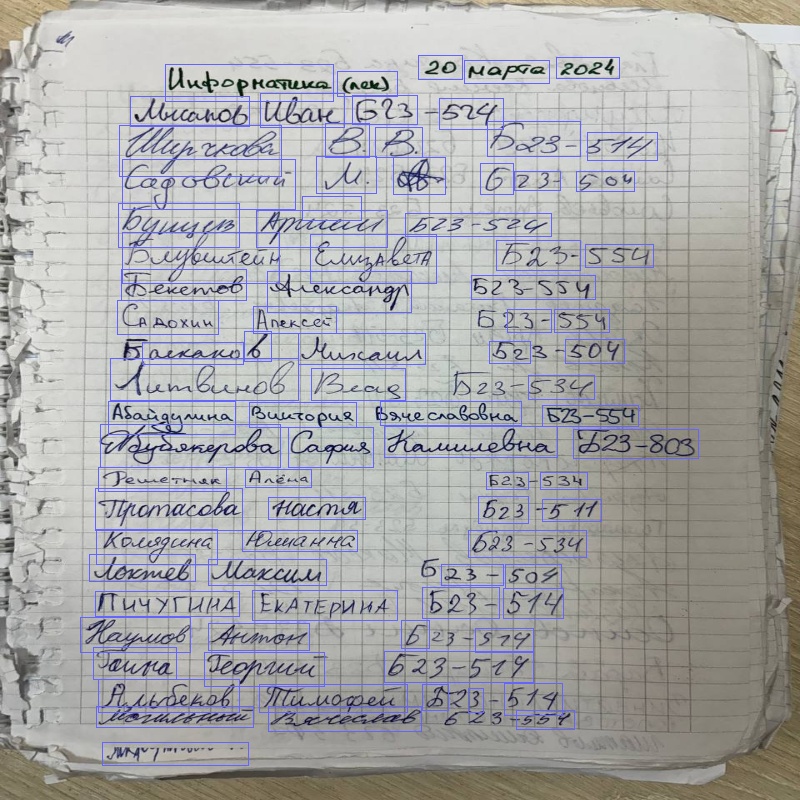 Информатика (лек) 20 марта 2024
Мисапов Иван Б23-524
Ширчкова В. В. Б23-514
Садовский М. Б23-504
Бунцев Артём Б23-524
Блувштейн Елизавета Б23-554
Бекетов Александр Б23-554
Садохин Алексей Б23-554
Баскаков Михаил Б23-504
Литвинов Влад Б23-534
Абайдулина Виктория Вячеславовна Б23-554
Абубякерова София Камилевна Б23-803
Решетняк Алёна Б23-534
Протасова Настя Б23-511
Колядина Юлианна Б23-534
Локтев Максим Б23-504
Пичугина Екатерина Б23-514
Наумов Антон Б23-514
Гаина Георгий Б23-514
Альбеков Тимофей Б23-514
Могильный Вячеслав Б23-554